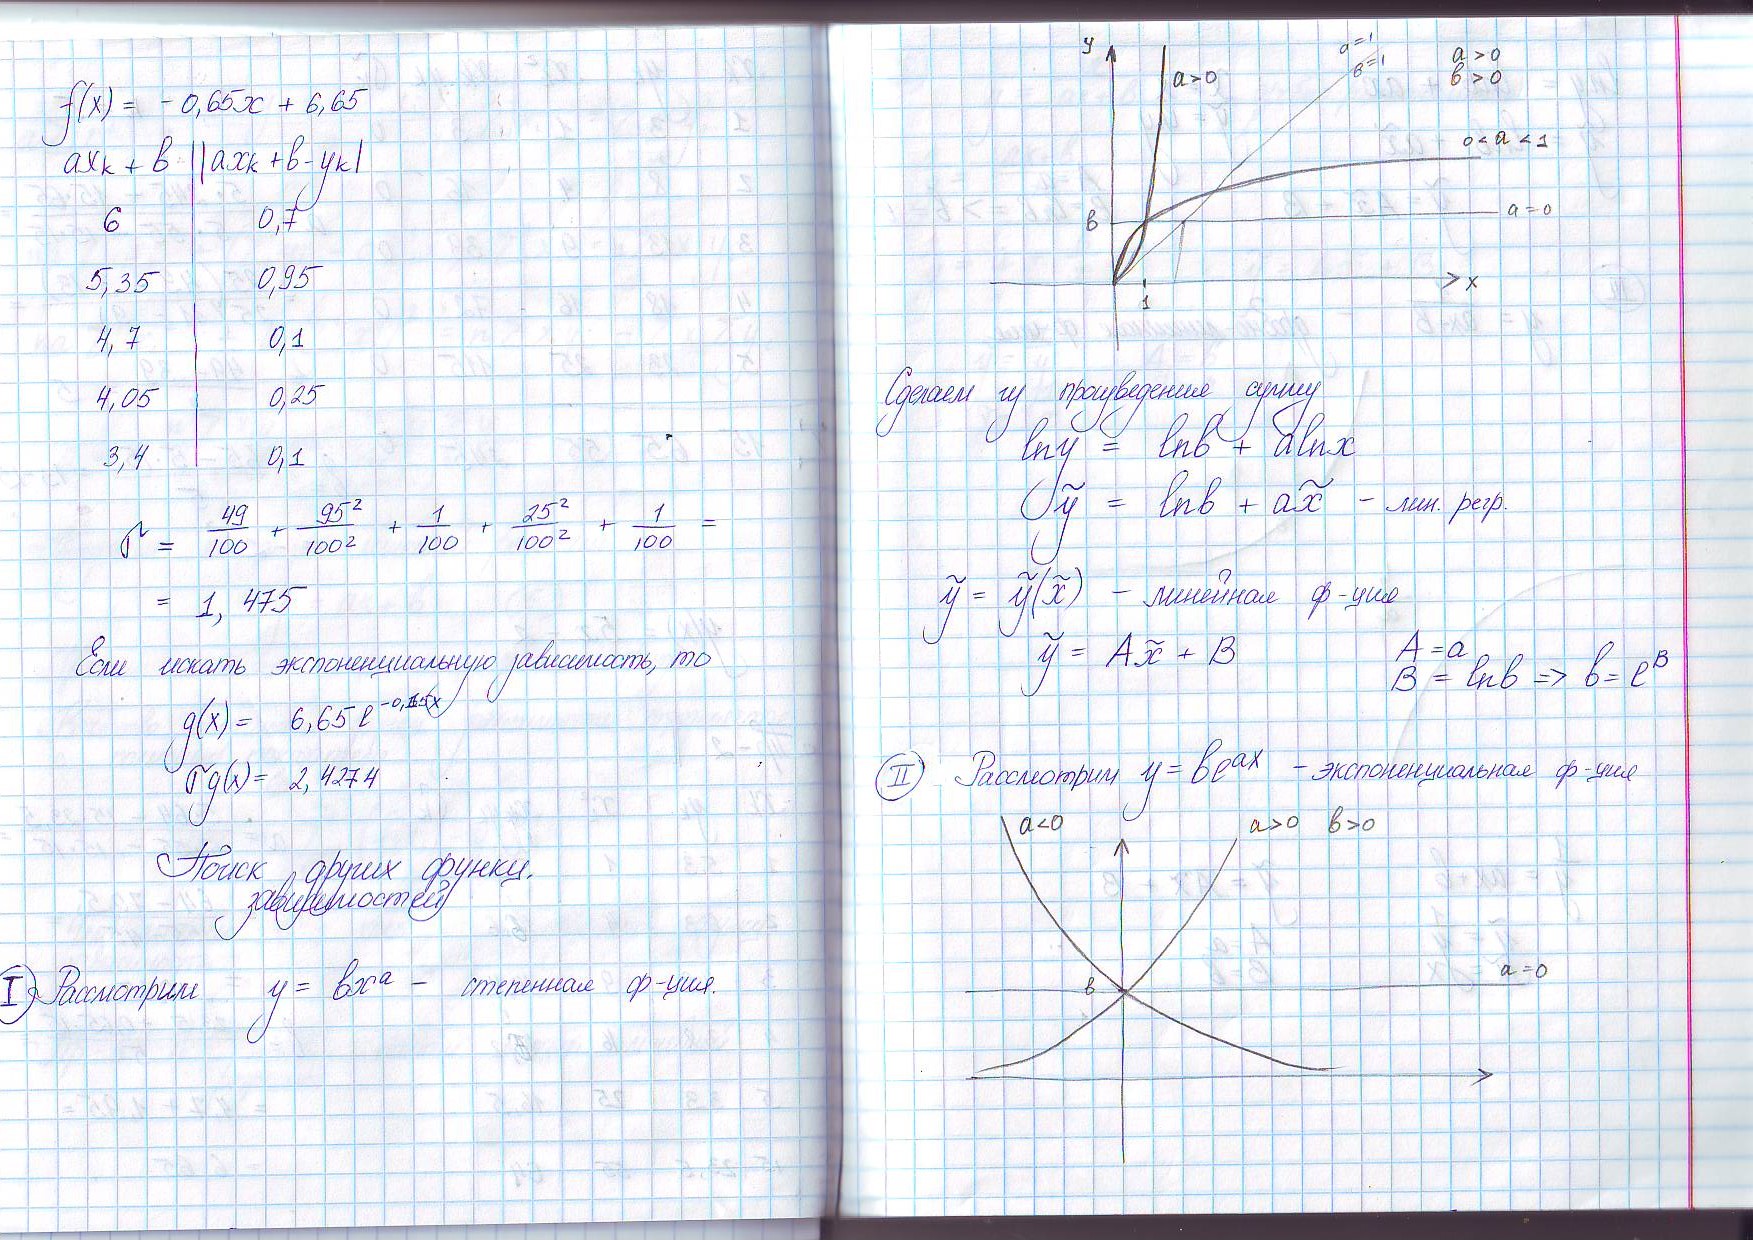 f(x) = -0,65x + 6,65
axк + в | |axк + в - yк|
6 0,7
5,35 0,95
4,7 0,1
4,05 0,25
3,4 0,1
σ = 49/100 + 95²/100² + 1/100 + 25²/100² + 1/100 =
= 1,475
Если искать экспоненциальную зависимость, то
g(x) = 6,65 e
σg(x) = 2,4274
Поиск других функц.
зависимостей
I Рассмотрим y = вxᵃ - степенная ф-ция.
y
a>0
a=1
в=1
a>0
в>0
0<a<1
в
a=0
1
x
Сделаем из произведения сумму
lny = lnв + alnx
ỹ = lnв + ax̃ - лин. регр.
ỹ = ỹ(x̃) - линейная ф-ция
ỹ = Ax̃ + B
A = a
B = lnв => в = eᴮ
II Рассмотрим y = веᵃˣ - экспоненциальная ф-ция
a<0
a>0 в>0
в
a=0